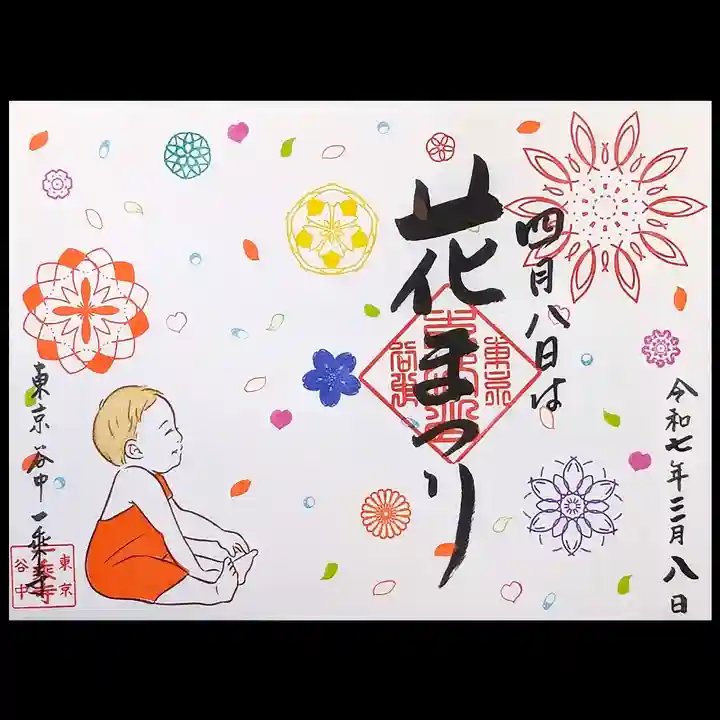 令和七年三月八日
四月八日は
花まつり
東京
谷中
東京谷中一乗寺
東京
谷中